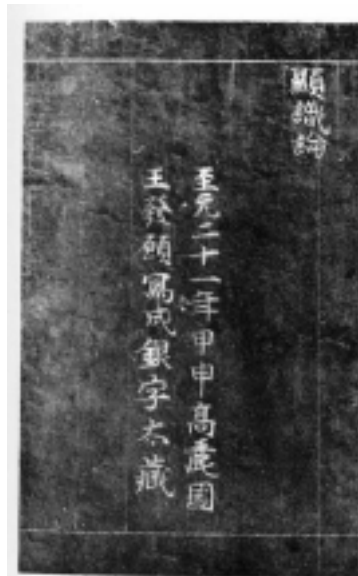 顯識論
至元二十一年甲申高麗國
王發願寫成銀字大藏